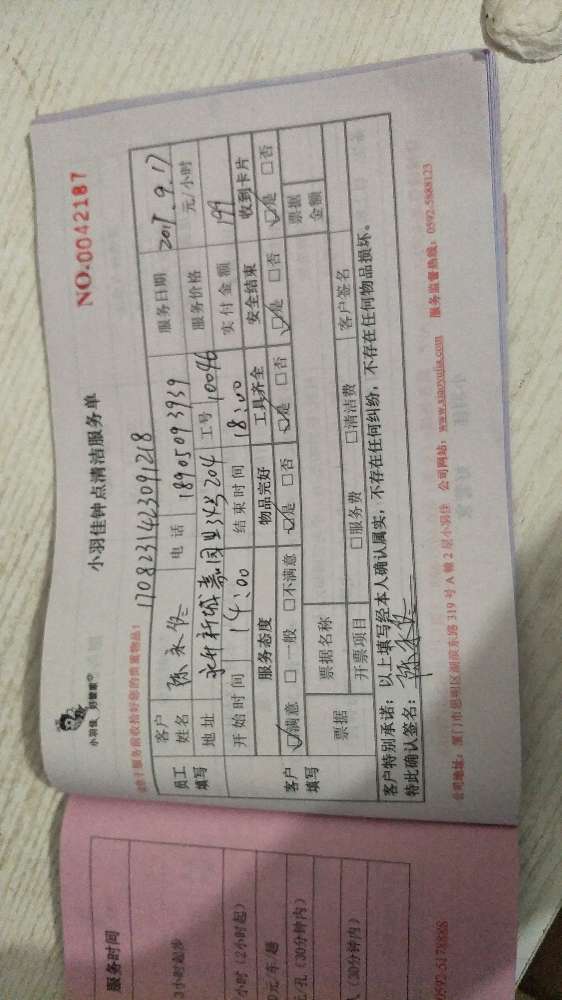 小羽佳 好管家
小羽佳钟点清洁服务单
NO.0042187
请于服务前收拾好您的贵重物品!
1708231423091218
员工填写
客户姓名 陈永 电话 18905093939 服务日期 2017.9.17
地址 新城 204 工号 10046 服务价格 元/小时
开始时间 14:00 结束时间 18:00 实付金额 199
客户填写
服务态度 物品完好 工具齐全 安全结束 收到卡片
☑满意 □一般 □不满意 ☑是 □否 ☑是 □否 ☑是 □否 ☑是 □否
票据 票据名称 票据金额
开票项目 □服务费 □清洁费 客户签名
客户特别承诺:以上填写经本人确认属实,不存在任何纠纷,不存在任何物品损坏。
特此确认签名:陈永
公司地址:厦门市思明区湖滨东路319号A幢2层小羽佳 公司网站:www.xiaoyujia.com 服务监督热线:0592-5888123
服务时间
3小时起步
小时(2小时起)
0元/车/趟
元/孔(30分钟内)
人(30分钟内)
0592-5178888